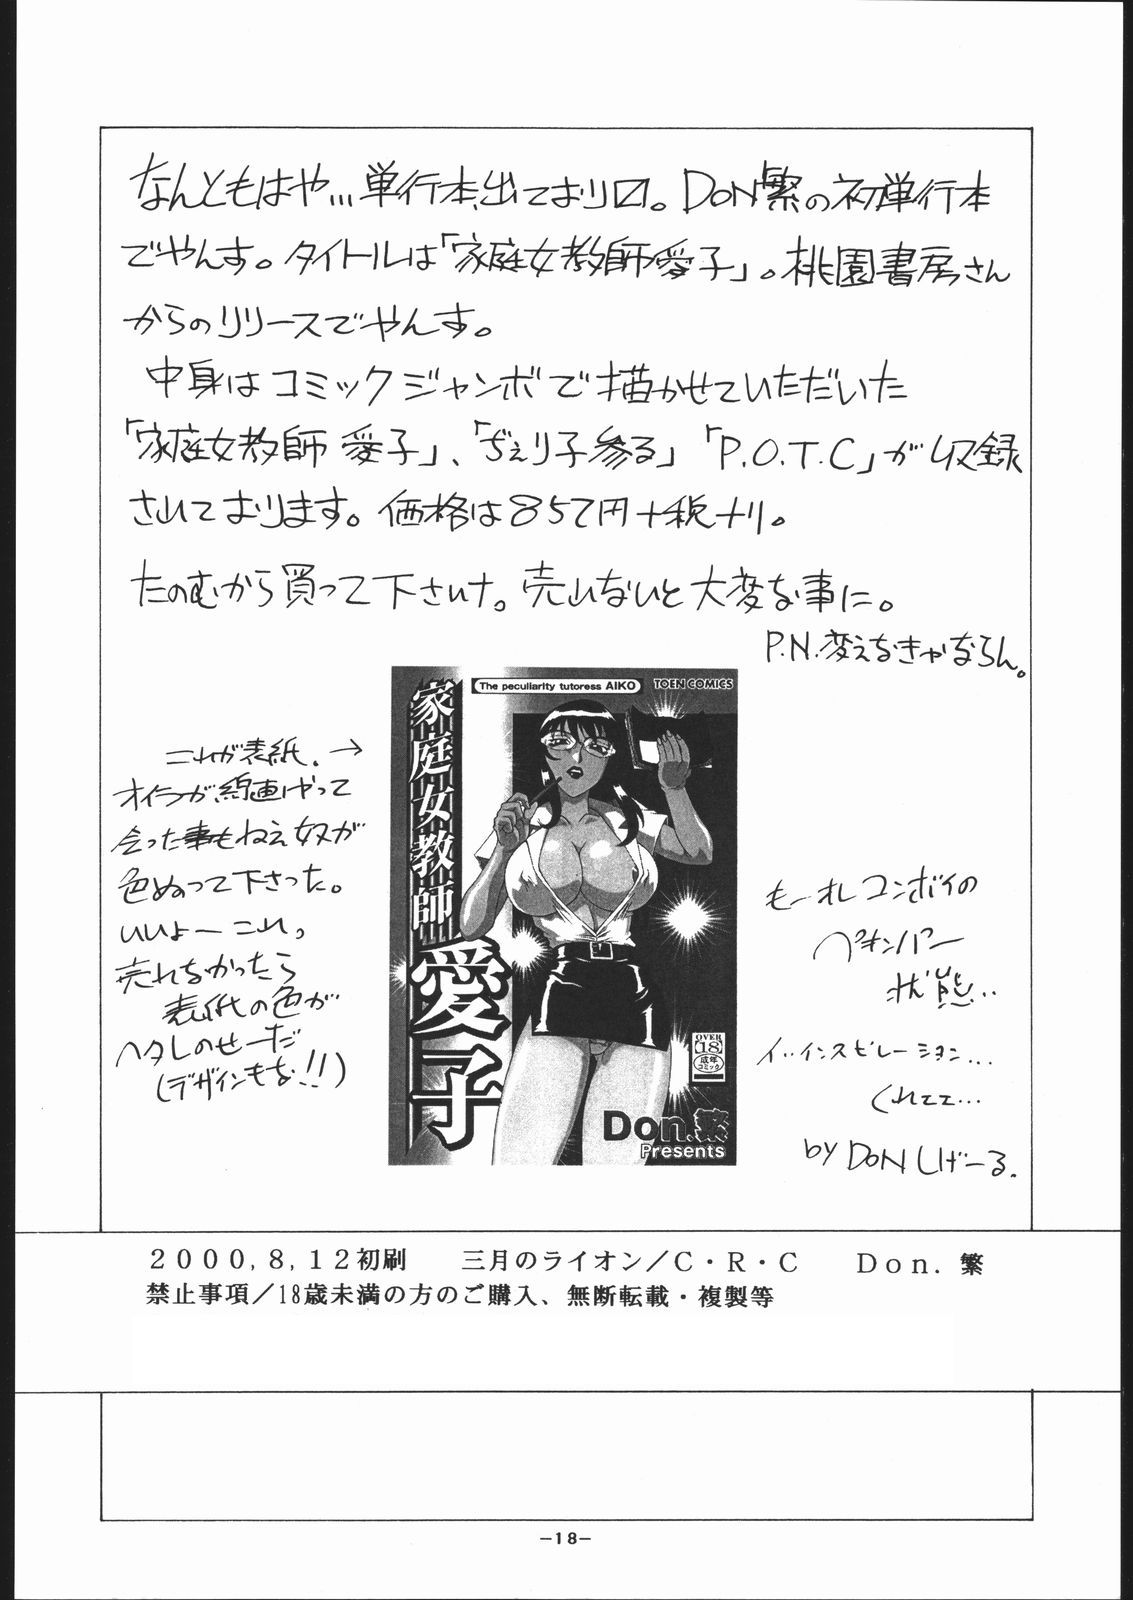 なんともはや…単行本出ており〼。DON繁の初単行本
でやんす。タイトルは「家庭女教師愛子」。桃園書房さん
からのリリースでやんす。
中身はコミックジャンボで描かせていただいた
「家庭女教師 愛子」、「ぢぇり子参る」「P.O.T.C」が収録
されております。価格は857円+税ナリ。
たのむから買って下さいナ。売れないと大変な事に。
P.N.変えなきゃならん。
これが表紙。→
オイラが線画けやって
会った事もねぇ奴が
色ぬって下さった。
いいよー これ。
売れなかったら
表紙の色が
ヘタレのせーだ
(デザインもな!!)
The peculiarity tutoress AIKO
TOEN COMICS
家庭女教師
愛子
OVER
18
成年
コミック
Don.繁
Presents
もーオレ コンボイの
状態…
イ…インスピレーション…
くれてて…
by DON しげーる.
2000,8,12初刷 三月のライオン/C・R・C Don. 繁
禁止事項/18歳未満の方のご購入、無断転載・複製等
-18-